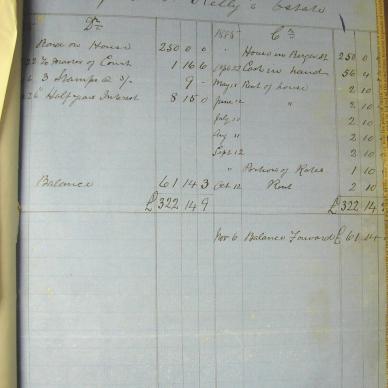 Kelly's Estate
Dr
Bond on House 250 0 0
To Master of Court 1 16 6
3 Stamps @ 3/- 9 -
Half year Interest 8 15 0
Balance 61 14 3
£322 14 9
1885 Cr
" House in 250 0
Cash in hand 56 4
May 12 Rent of house 2 10
June 12 " 2 10
July 11 2 10
Aug 11 2 10
Sept 12 2 10
" Portions of Rates 1 10
Oct 12 Rent 2 10
£322 14
Nov 6 Balance Forward £61 14